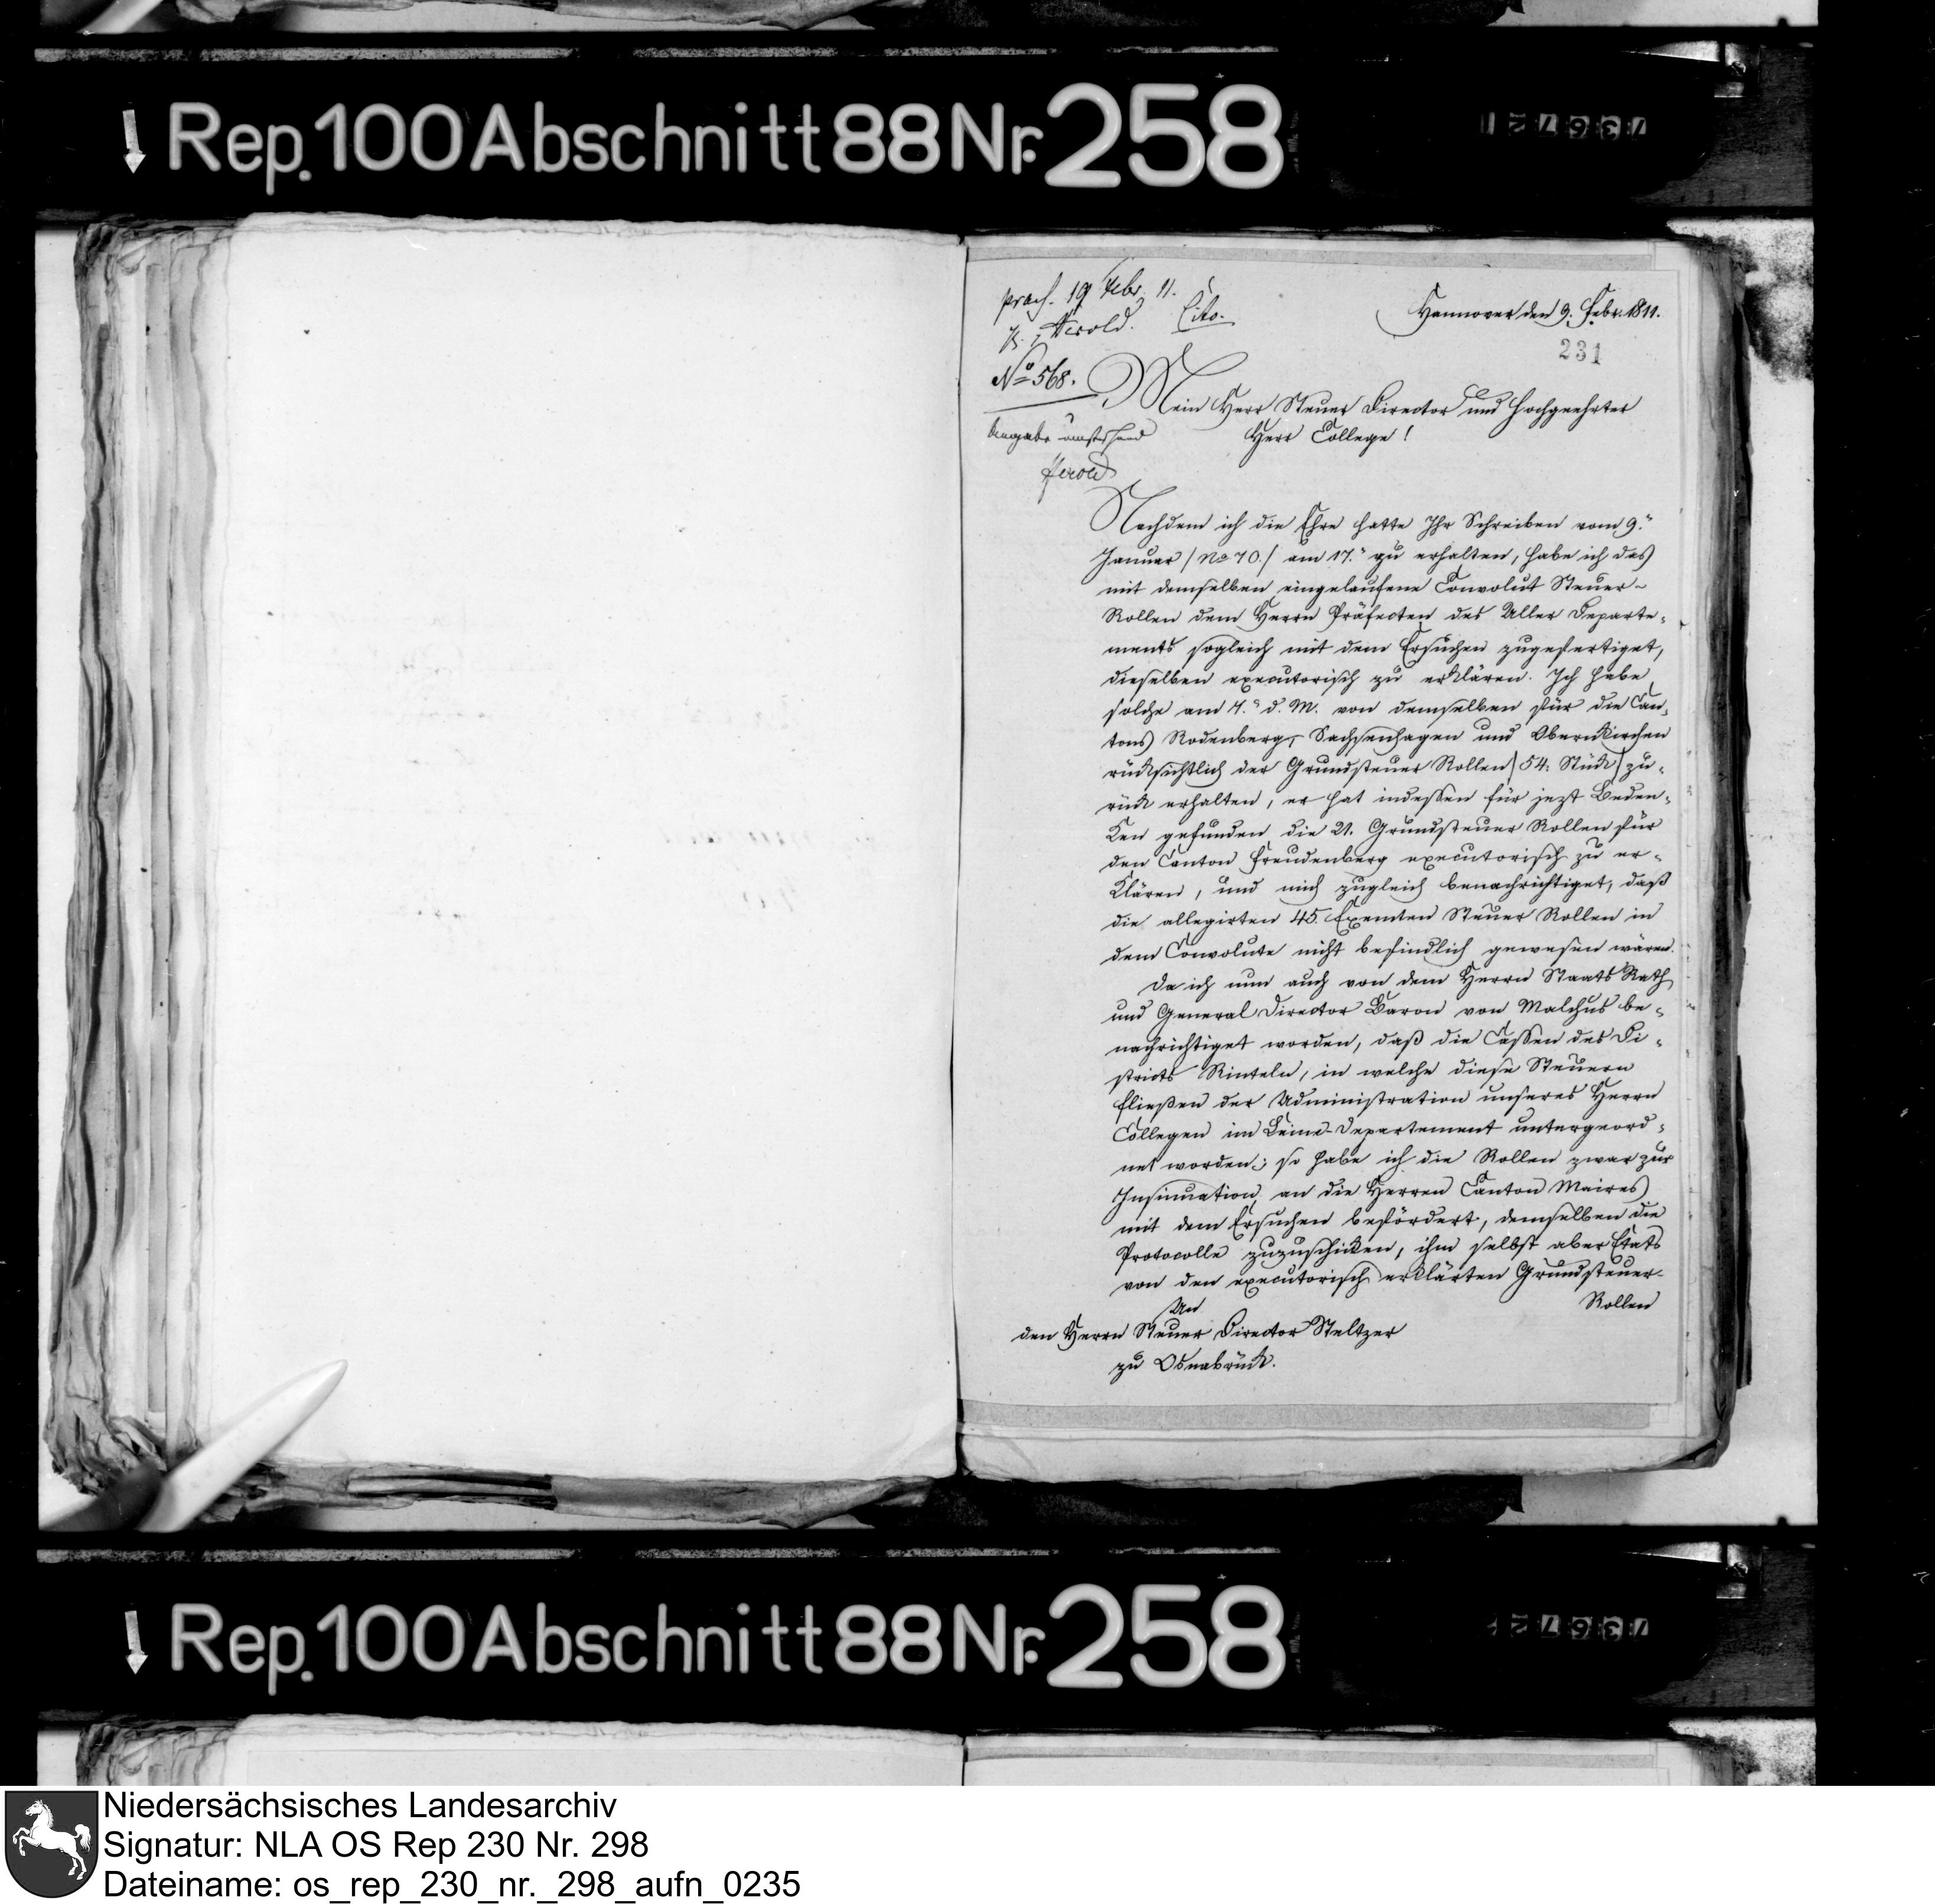 Rep. 100 Abschnitt 88 Nr. 258
73672
praes. 19 Febr. 11.
Herold. Cito.
Hannover den 9. Febr. 1811.
231
No 568.
Mein Herr Steuer Director und Hochgeehrter
Herr College!
Herold
Nachdem ich die Ehre hatte Ihr Schreiben vom 9.
Januar (No 70.) am 17. zu erhalten, habe ich das
mit demselben eingelaufene Convolut Steuer-
Rollen dem Herrn Präfecten des Aller Departe-
ments sogleich mit dem Ersuchen zugefertiget,
dieselben executorisch zu erklären. Ich habe
solche am 4. d. M. von demselben für die Can-
tons Rodenberg, Sachsenhagen und Obernkirchen
rücksichtlich der Grundsteuer Rollen (54. Stück) zu-
rück erhalten, er hat indessen für jezt Beden-
ken gefunden die 21. Grundsteuer Rollen für
den Canton Freudenberg executorisch zu er-
klären, und mich zugleich benachrichtiget, daß
die allegirten 45. Exemten Steuer Rollen in
dem Convolute nicht befindlich gewesen wären.
Da ich nun auch von dem Herrn Staats Rath
und General Director Baron von Malchus be-
nachrichtiget worden, daß die Cassen des Di-
stricts Rinteln, in welche diese Steuern
fließen der Administration unseres Herrn
Collegen im Leine-Departement untergeord-
net worden; so habe ich die Rollen zwar zur
Insinuation an die Herren Canton Maires
mit dem Ersuchen befördert, demselben die
Protocolle zuzuschicken, ihm selbst aber Etats
von den executorisch erklärten Grundsteuer-
Rollen
An
den Herrn Steuer Director Steltzer
zu Osnabrück.
Rep. 100 Abschnitt 88 Nr. 258
73672
Niedersächsisches Landesarchiv
Signatur: NLA OS Rep 230 Nr. 298
Dateiname: os_rep_230_nr._298_aufn_0235